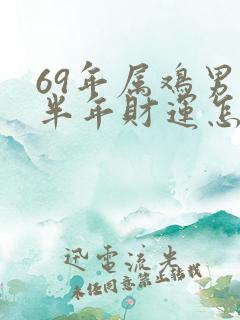 69年属鸡男
半年财运怎
迅電流光
未经同意禁止转载